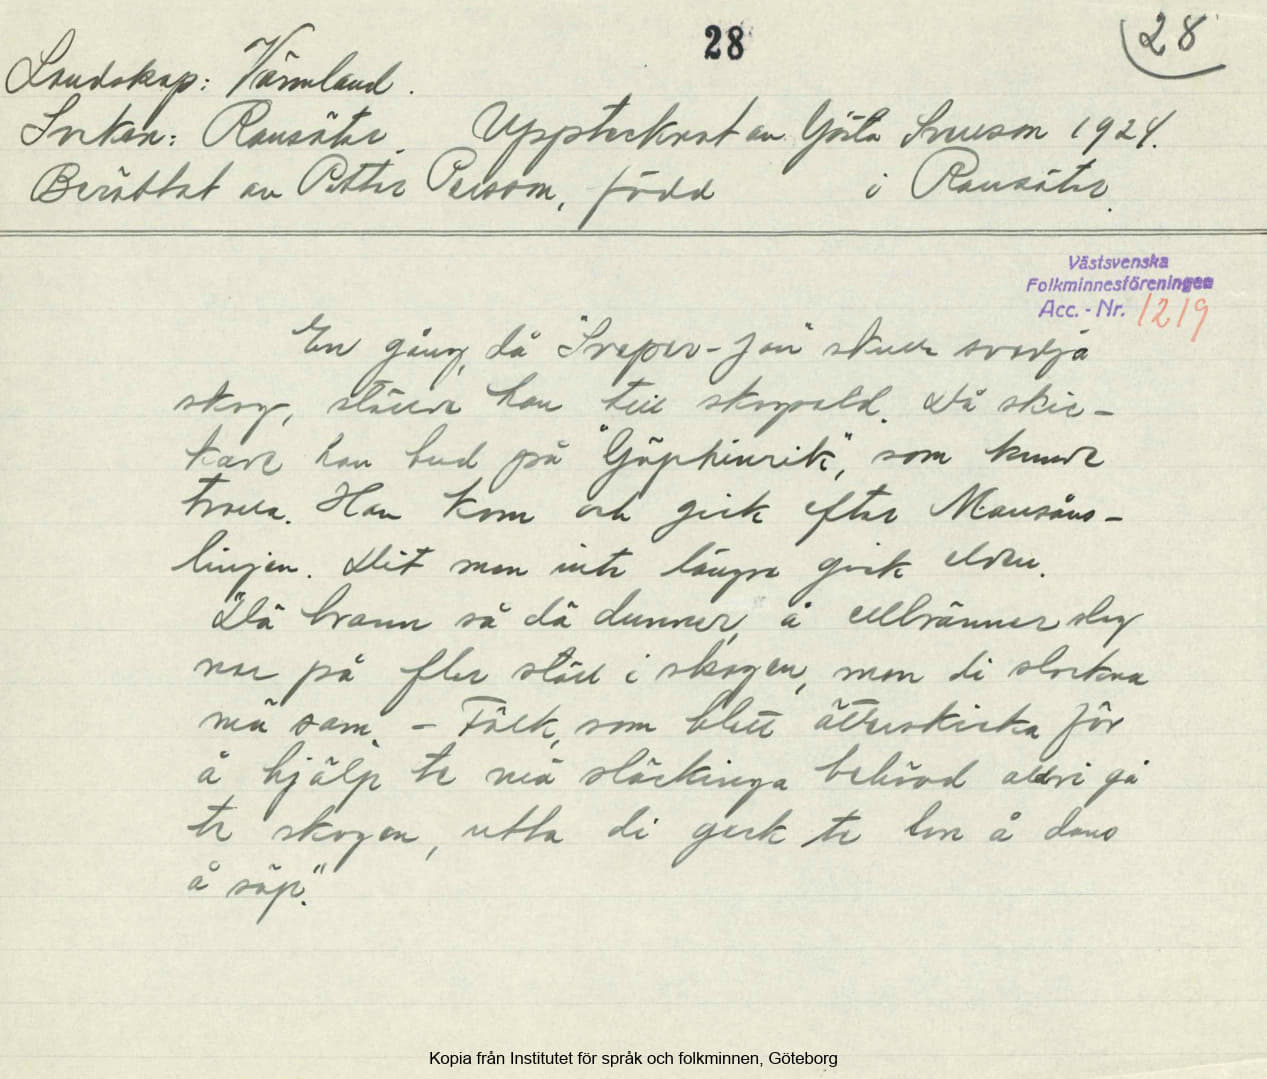 28
28
Landskap: Värmland.
Socken: Ransäter. Upptecknat av Gösta Svensson 1924.
Berättat av Petter Persson, född i Ransäter.
Västsvenska
Folkminnesföreningen
Acc. - Nr. 1219
En gång, då "Sveper-Jan" skulle svedja
skog, ställde han till skogseld. Då skic-
kade han bud på "Göphinrik", som kunde
trolla. Han kom och gick efter Mansås-
linjen. Dit men inte längre gick elden.
"Dä brann så dä dunner, å ellbränner slog
ner på fler ställ i skogen, men di slockna
mä sam. - Fôlk, som blitt ätterskicka för
å hjälp te mä släckinga behövd aldri gå
te skogen, utta di geck te lon å dans
å söp."
Kopia från Institutet för språk och folkminnen, Göteborg